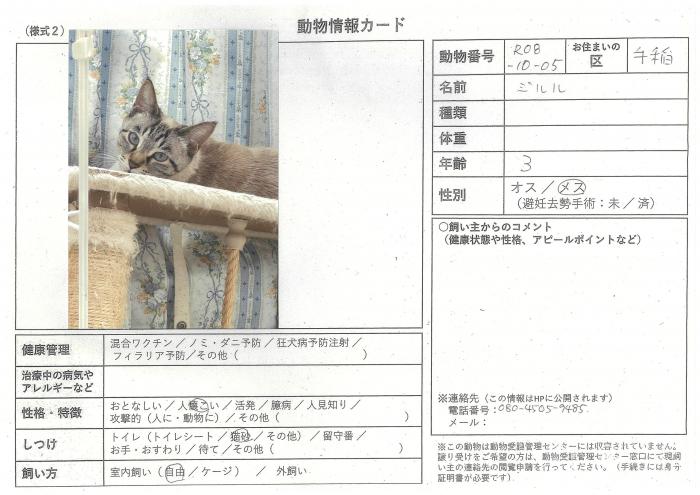 （様式２）
動物情報カード
動物番号 R08-10-05 お住まいの区 手稲
名前 ジルル
種類
体重
年齢 3
性別 オス／メス
（避妊去勢手術：未／済）
○飼い主からのコメント
（健康状態や性格、アピールポイントなど）
※連絡先（この情報はHPに公開されます）
電話番号：080-4505-9485.
メール：
健康管理 混合ワクチン／ノミ・ダニ予防／狂犬病予防注射／
フィラリア予防／その他（　　　）
治療中の病気や
アレルギーなど
性格・特徴 おとなしい／人懐こい／活発／臆病／人見知り／
攻撃的（人に・動物に）／その他（　　　）
しつけ トイレ（トイレシート／猫砂／その他）／留守番／
お手・おすわり／待て／その他（　　　）
飼い方 室内飼い（自由／ケージ）　／　外飼い
※この動物は動物愛護管理センターには収容されていません。
譲り受けをご希望の方は、動物愛護管理センター窓口にて現飼
い主の連絡先の閲覧申請を行ってください。（手続きには身分
証明書が必要です）